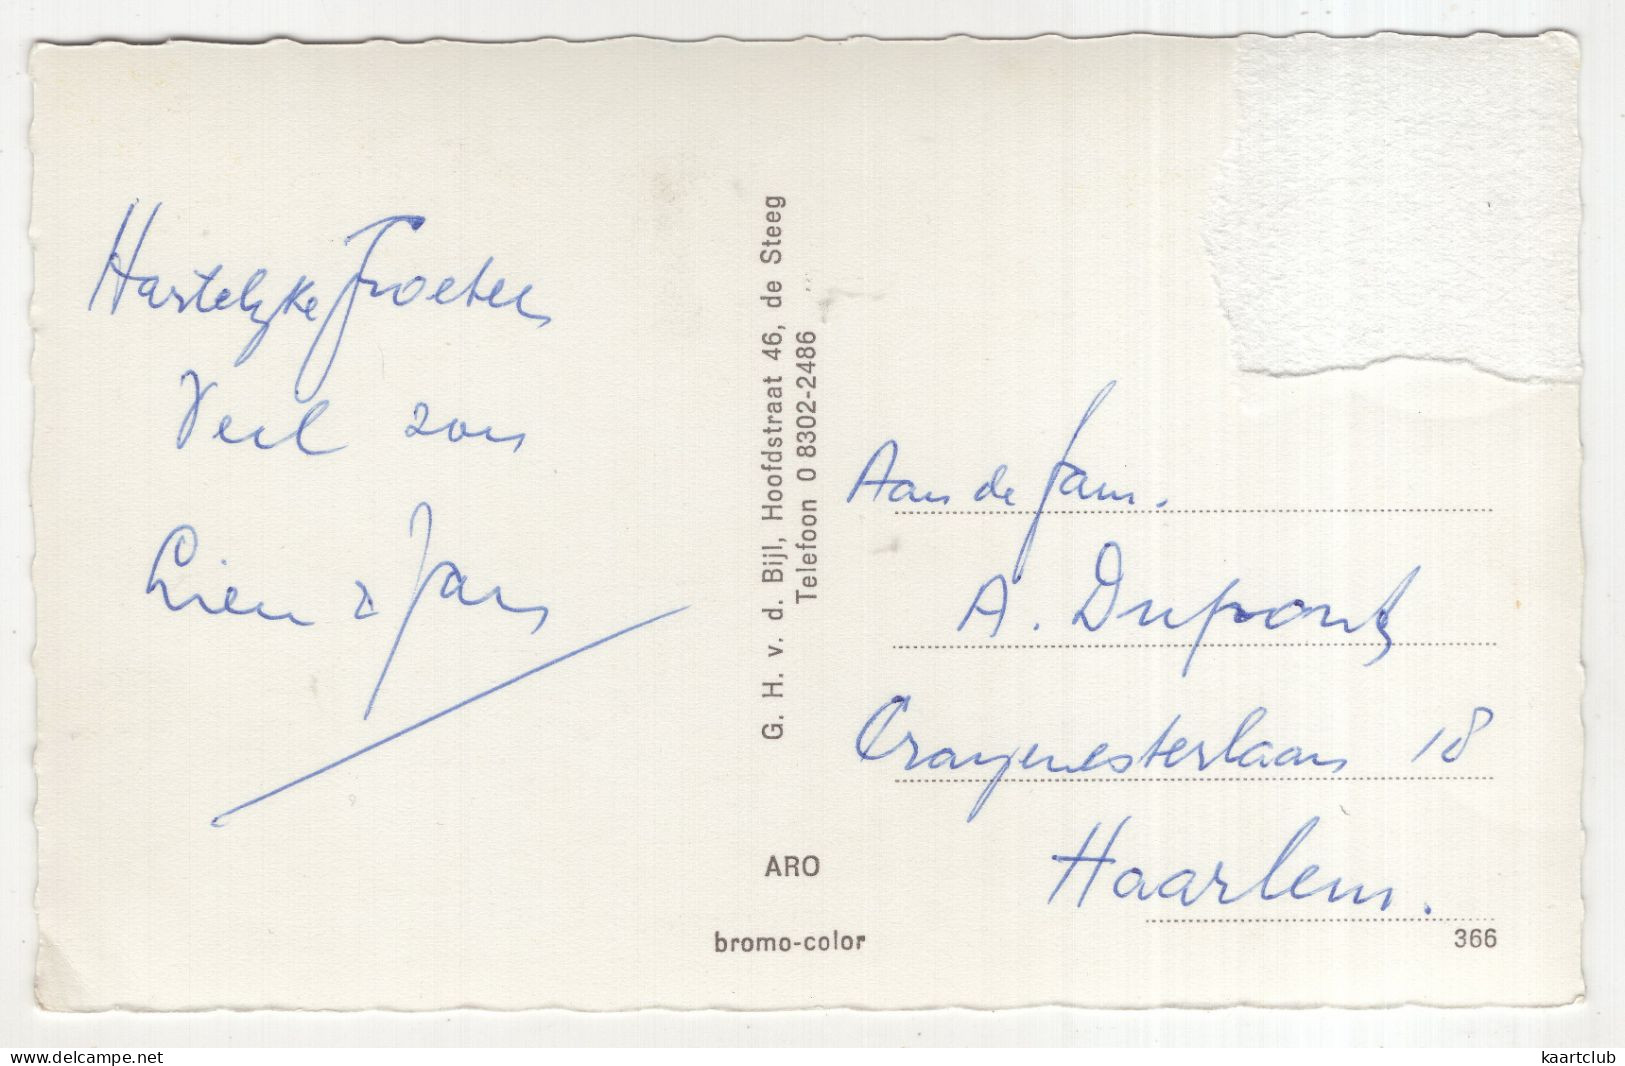 Hartelyke Groeten
Veel zon
Lien & Jan
G. H. v. d. Bijl, Hoofdstraat 46, de Steeg
Telefoon 0 8302-2486
ARO
bromo-color
Aan de fam.
A. Dupont
Oranjenesterlaan 18
Haarlem.
366
www.delcampe.net
kaartclub